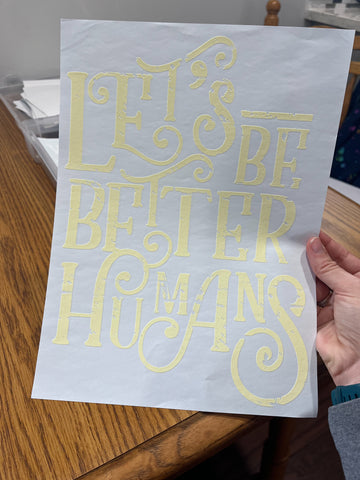 LET'S BE
BETTER
HUMANS